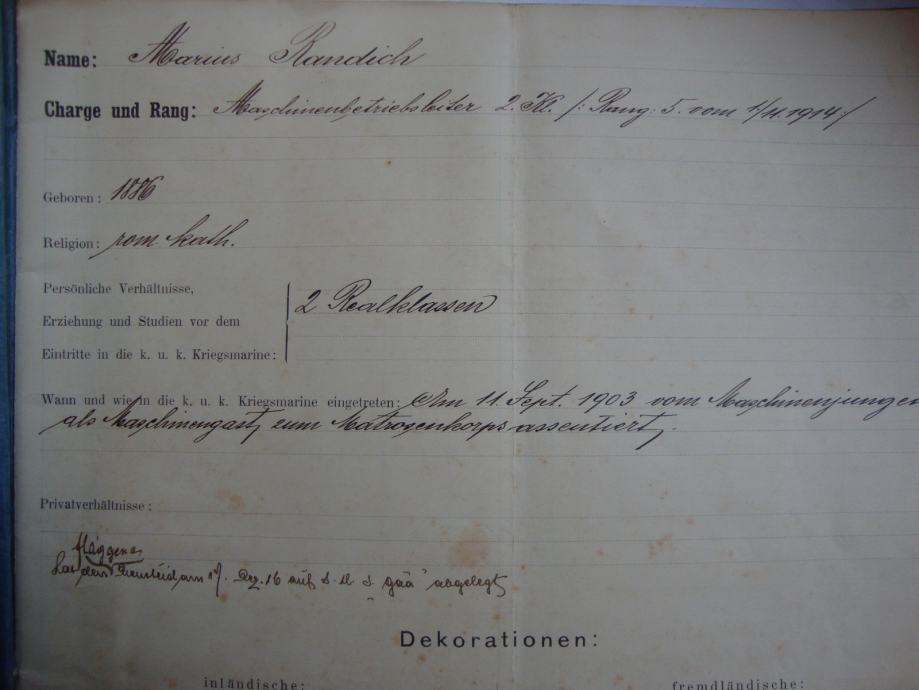 Name: Marius Randich
Charge und Rang: Maschinenbetriebsleiter 2. Kl. /: Rang: 5. vom 1./11.1914 :/
Geboren: 1886
Religion: röm kath.
Persönliche Verhältnisse,
Erziehung und Studien vor dem
Eintritte in die k. u. k. Kriegsmarine:
2 Realklassen
Wann und wie in die k. u. k. Kriegsmarine eingetreten: Am 11. Sept. 1903 vom Maschinenjungen
als Maschinengast zum Matrosenkorps assentiert.
Privatverhältnisse:
flaggen
hat den Diensteid am Dez. 16 auf S. M. S. "gäa" abgelegt
Dekorationen:
inländische: fremdländische: